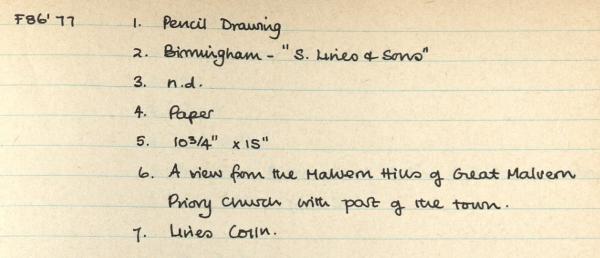 F86'77 1. Pencil Drawing
2. Birmingham - "S. Lines & Sons"
3. n.d.
4. Paper
5. 10 3/4" x 15"
6. A view from the Malvern Hills of Great Malvern
Priory Church with part of the town.
7. Lines Colln.